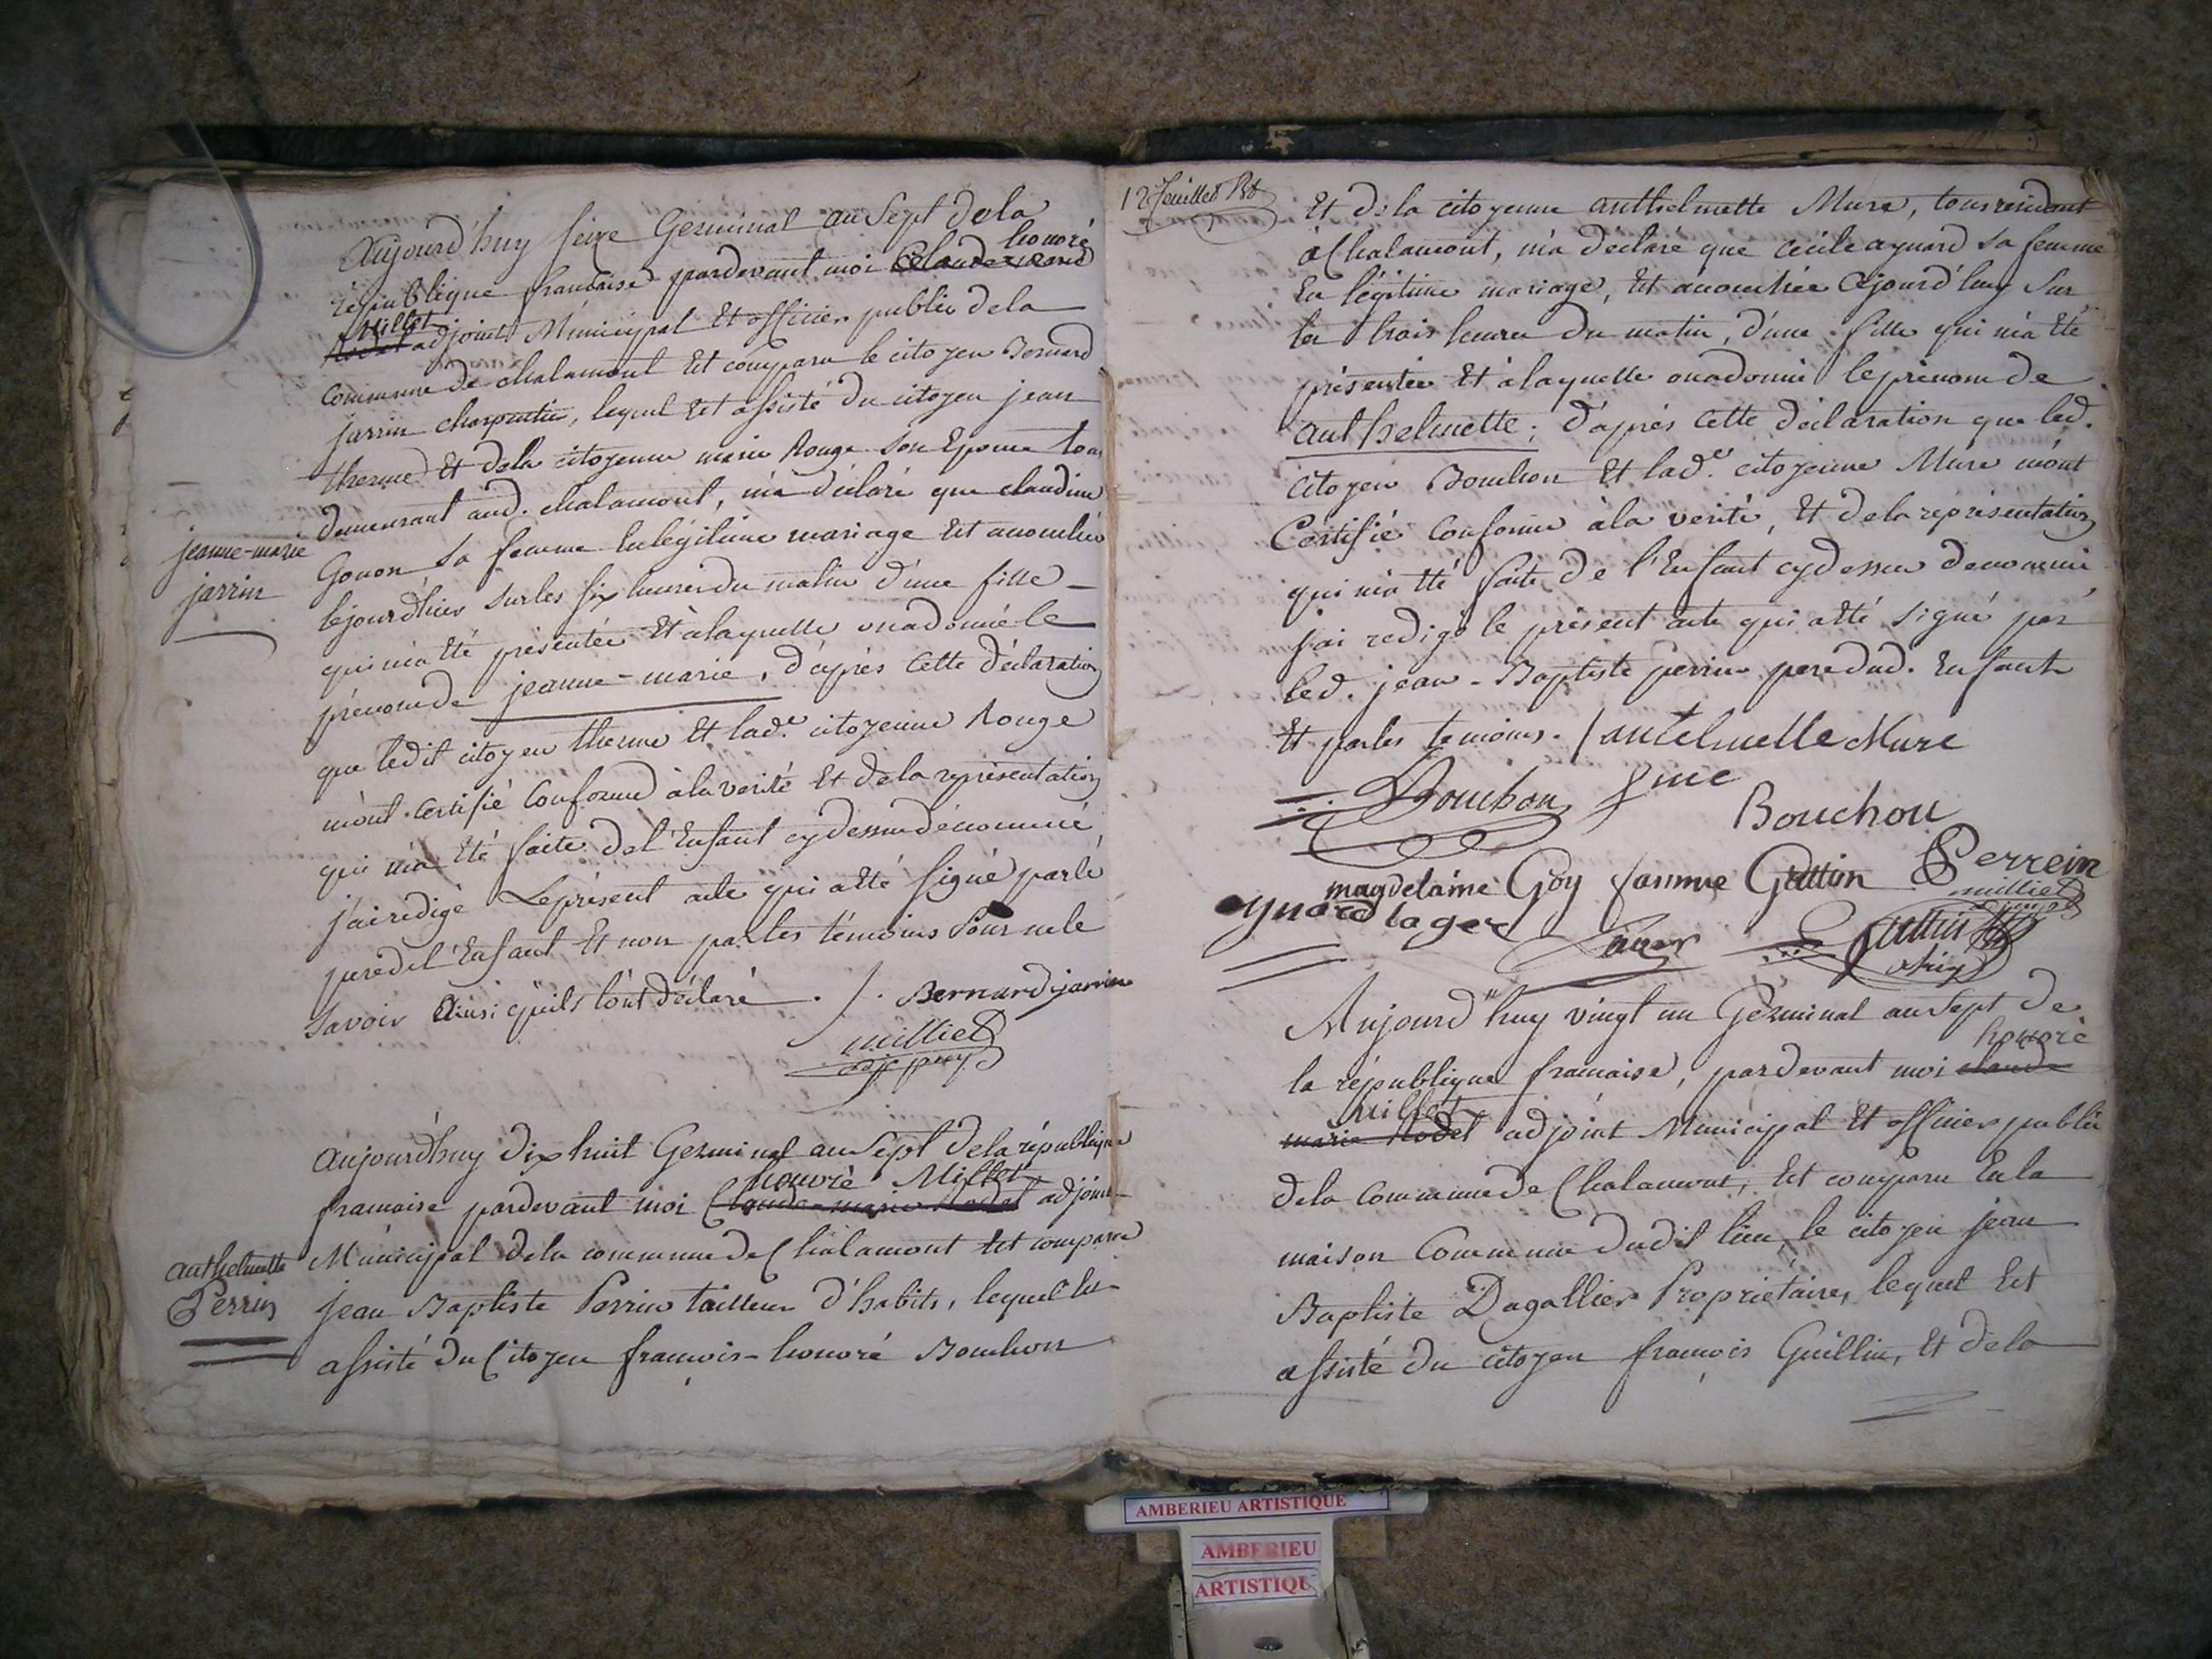 Aujourd'huy seize Germinal an Sept de la
honoré
république francaise pardevant moi Claude marie
Millet
Rodet adjoint Municipal Et officier public de la
Commune de chalamont Est comparu le citoyen Bernard
jarrin charpentier, lequel Est assisté du citoyen jean
therme Et de la citoyenne marie Rouge son Epouse tous
demeurant aud. chalamont, m'a déclaré que claudine
jeanne-marie
jarrin
Gonon sa femme En légitime mariage Est acouchée
le jour d'hier sur les six heures du matin d'une fille
qui m'a Eté présentée Et à laquelle on a donné le
prénom de jeanne-marie, d'après cette déclaration
que ledit citoyen therme Et lad.e citoyenne Rouge
m'ont certifié Conforme à la verité Et de la représentation
qui m'a Eté faite de l'Enfant cydessus dénommé,
j'ai redigé Le présent acte qui a Eté signé par le
pere de l'Enfant Et non par les témoins pour ne le
savoir Ainsi qu'ils l'ont déclaré . /. Bernard jarrin
milliet
adj.
Aujourd'huy dix huit Germinal an Sept de la république
honoré Millet
francaise pardevant moi Claude-marie Rodet adjoint
Municipal de la commune de Chalamont Est comparu
anthelmette
Perrin
jean Baptiste Perrin tailleur d'habits, lequel Est
assisté du Citoyen francois-honoré Bouchon
12 feuillet
Et de la citoyenne anthelmette Mure, tous residant
à Chalamont, m'a déclaré que cécile aynard sa femme
En légitime mariage, Est acouchée Cejourd'huy sur
les trois heures du matin, d'une fille qui m'a Eté
présentée Et à laquelle on a donné le prénom de
anthelmette; d'après cette déclaration que led.
citoyen Bouchon Et lad.e citoyenne Mure m'ont
Certifié Conforme à la verité, Et de la représentation
qui m'a Eté faite de l'Enfant cydessus denommé,
j'ai redigé le présent acte qui a Eté signé par
led. jean-Baptiste perrin pere dud. Enfant
Et par les temoins. / antelmette Mure
Bouchon fme
Bouchon
magdelaine Goy Jannne Guttin Perrein
milliet
aynard lager
Aujourd'huy vingt un Germinal an Sept de
honoré
la république francaise, pardevant moi claude
millet
marie Rodet adjoint Municipal Et officier public
de la Commune de Chalamont, Est comparu En la
maison Commune dudit lieu, le citoyen jean
Baptiste Dagallier Propriétaire, lequel Est
assisté du citoyen francois Guillin, Et de la
AMBERIEU ARTISTIQUE
AMBERIEU
ARTISTIQU